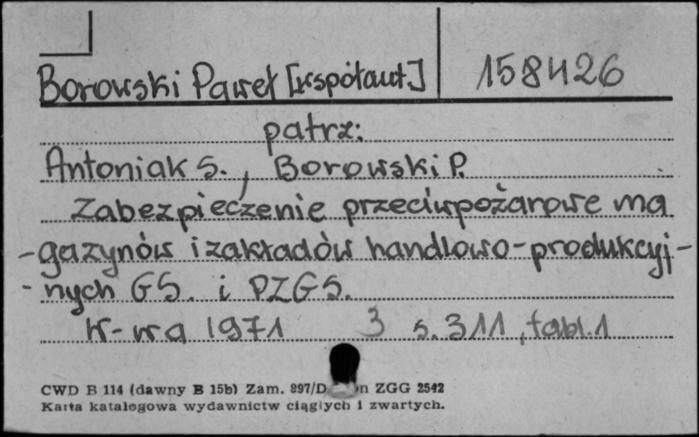 Borowski Paweł [współaut.] 158426
patrz:
Antoniak S., Borowski P.
Zabezpieczenie przeciwpożarowe ma
-gazynów i zakładów handlowo-produkcyj-
-nych GS. i PZGS.
W-wa 1971 3 s. 311, tabl. 1
CWD B 114 (dawny B 15b) Zam. 897/D n ZGG 2542
Karta katalogowa wydawnictw ciągłych i zwartych.